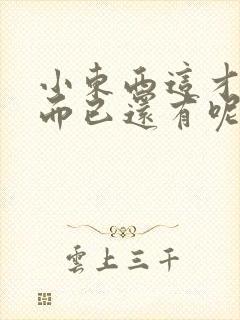 小東西這才
而已還有呢
雲上三千